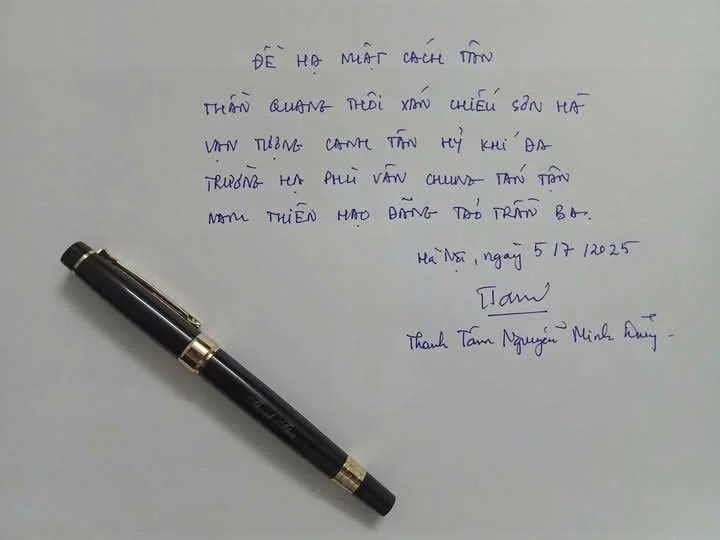 ĐỀ HẠ NHẬT CÁCH TÂN
THẦN QUANG THÔI XÁN CHIẾU SƠN HÀ
VẠN TƯỢNG CANH TÂN HỶ KHÍ ĐA
TRƯỜNG HẠ PHÙ VÂN CHUNG TÁN TẬN
NAM THIÊN HẠO ĐÃNG TẢO TRẦN BA.
Hà Nội, ngày 5/7/2025
Thanh Tâm Nguyễn Minh